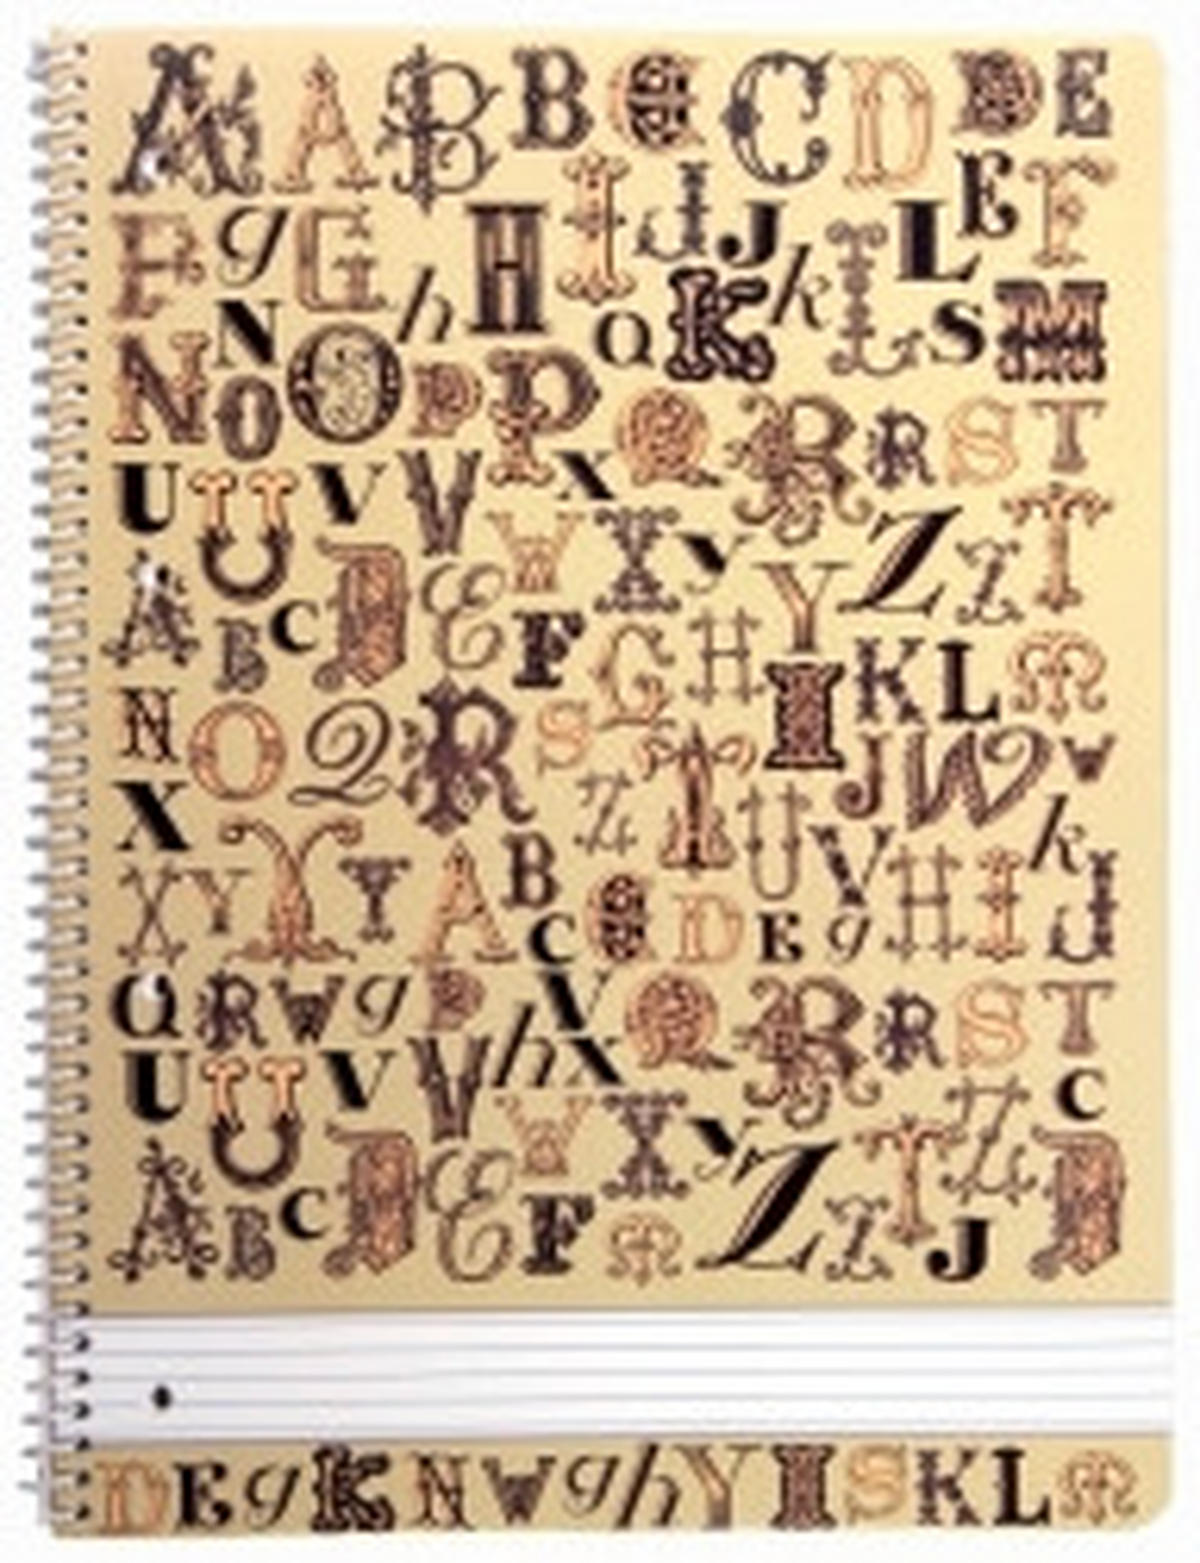 A A B B C C D D E
F g G h H I J J k L L E F
N N O O P P Q K R R S M S T
U U V V P X Q W X y Y Z Z T
A B C D E F G H I K L M
N O Q R S T J W w
X Z U V k
X Y Y T A B C C D E g H I J
Q R W g P h V Q R R S T
U U V V X W X y Z T Z C
A B C D E F M Z Z J D
D E g K N W g h Y I S K L M